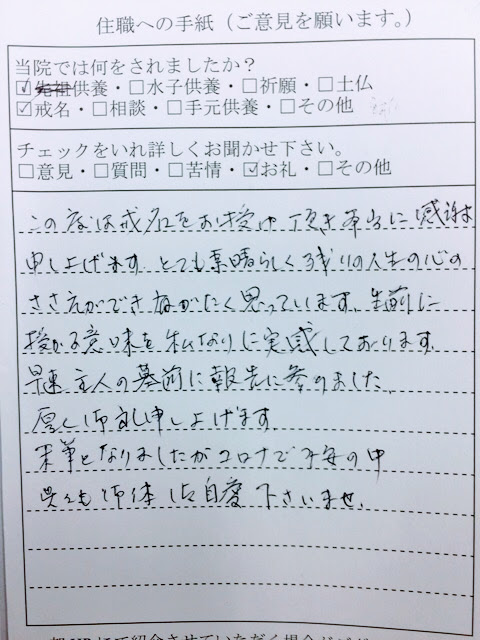 住職への手紙（ご意見を願います。）
当院では何をされましたか？
☑先祖供養・□水子供養・□祈願・□土仏
☑戒名・□相談・□手元供養・□その他
チェックをいれ詳しくお聞かせ下さい。
□意見・□質問・□苦情・☑お礼・□その他
この度は戒名をお授け頂き本当に感謝
申し上げます。とても素晴らしく残りの人生の心の
ささえができ有がたく思っています。生前に
授かる意味を私なりに実感しております。
早速主人の墓前に報告に参りました。
厚く御礼申し上げます。
末筆となりましたがコロナで不安の中
呉々も御体御自愛下さいませ。